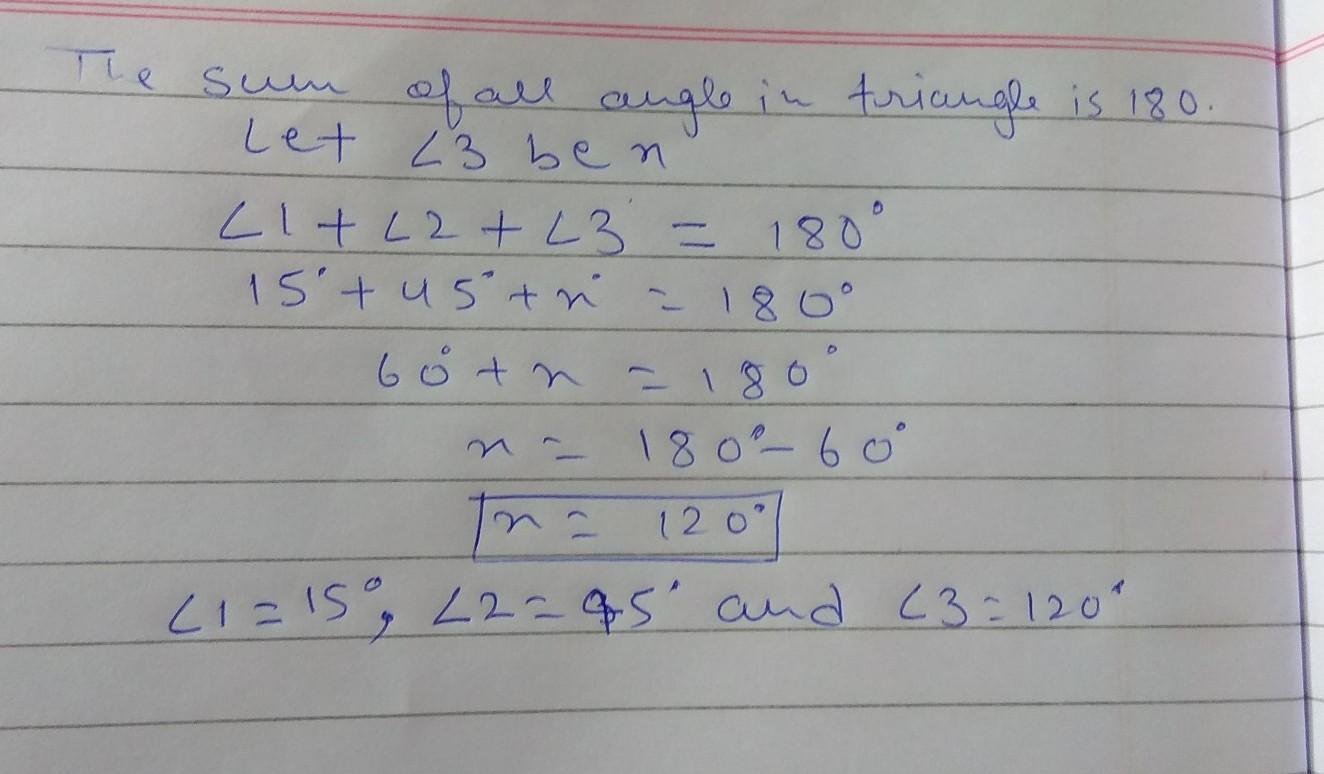 The sum of all angle in triangle is 180.
Let ∠3 be x
∠1 + ∠2 + ∠3 = 180°
15° + 45° + x° = 180°
60° + x = 180°
x = 180° - 60°
x = 120°
∠1 = 15°, ∠2 = 45° and ∠3 = 120°